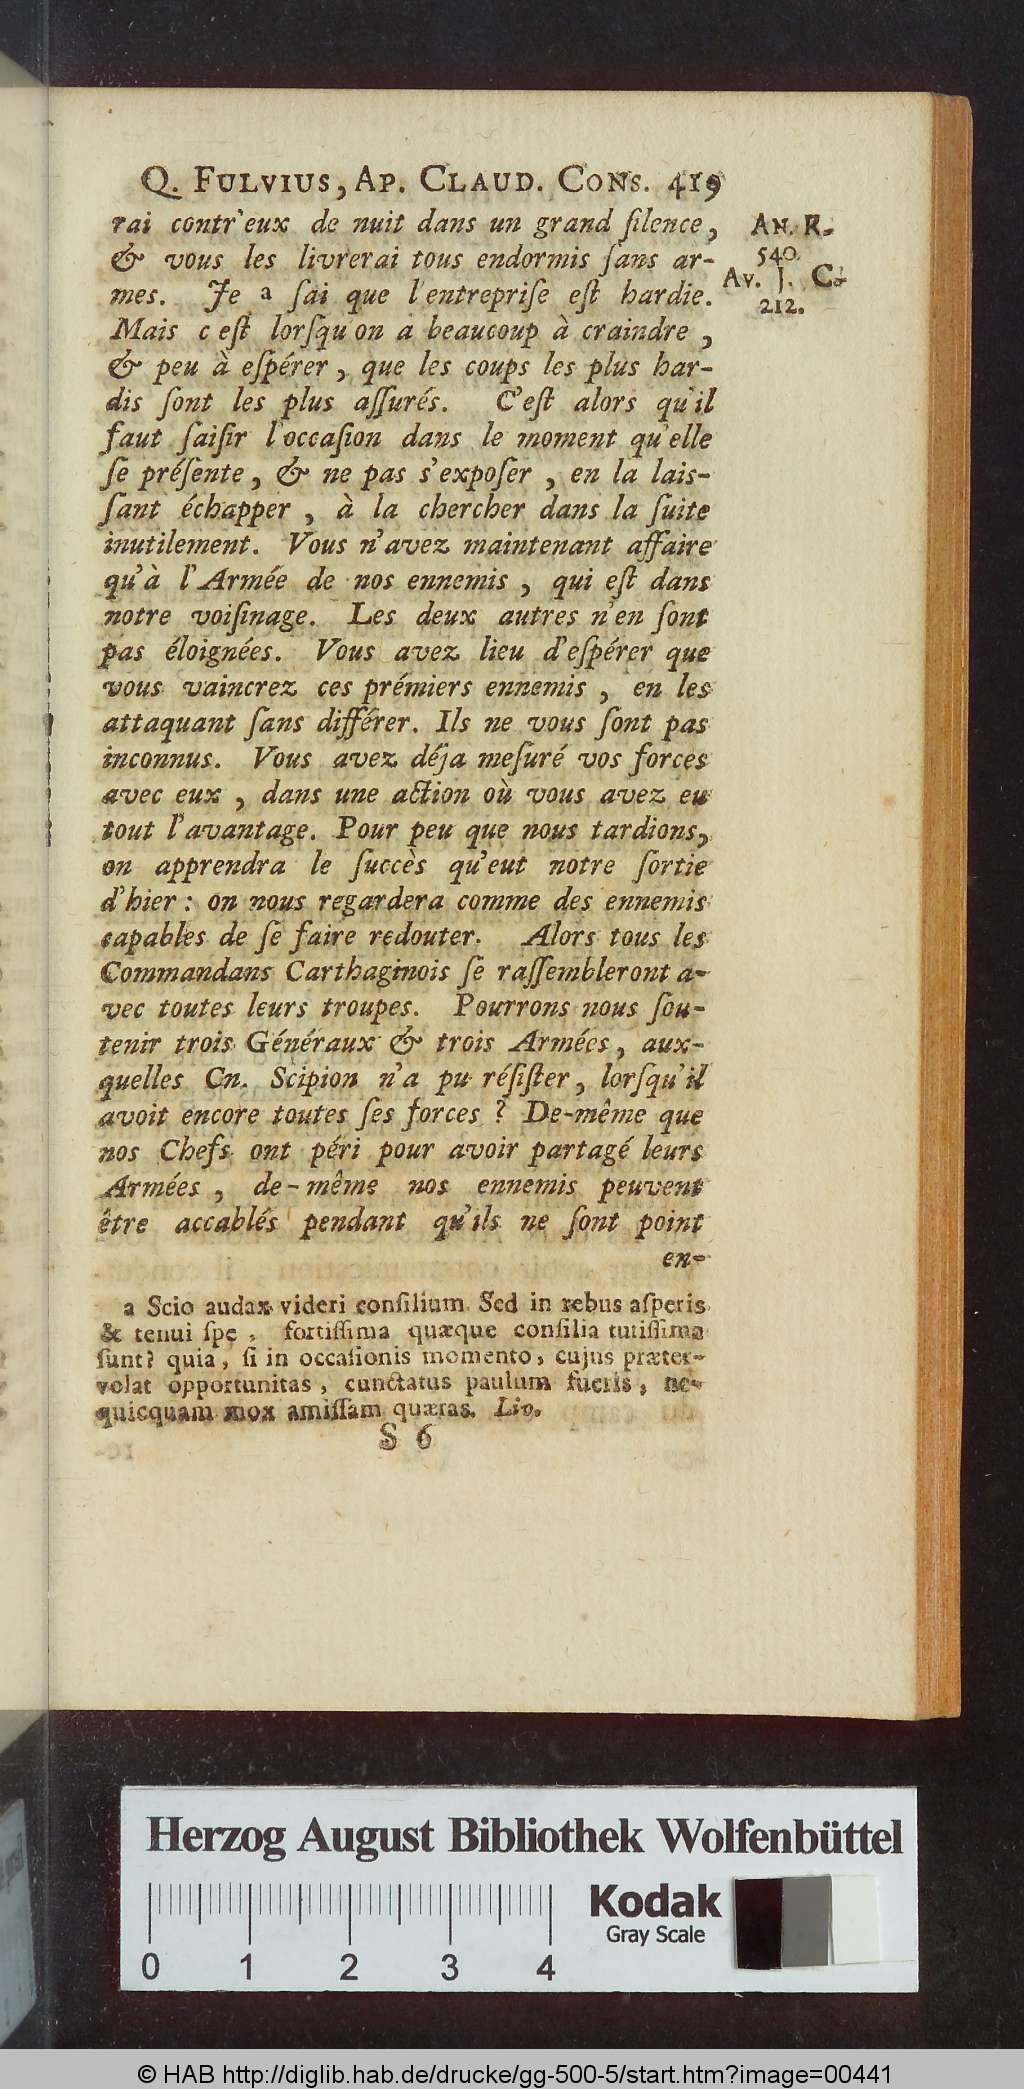 Q. FULVIUS, AP. CLAUD. CONS. 419
rai contr'eux de nuit dans un grand ſilence,
& vous les livrerai tous endormis ſans ar-
mes. Je a ſai que l'entrepriſe eſt hardie.
Mais c'eſt lorſqu'on a beaucoup à craindre,
& peu à eſpérer, que les coups les plus har-
dis ſont les plus aſſurés. C'eſt alors qu'il
faut ſaiſir l'occaſion dans le moment qu'elle
ſe préſente, & ne pas s'expoſer, en la lais-
ſant échapper, à la chercher dans la ſuite
inutilement. Vous n'avez maintenant affaire
qu'à l'Armée de nos ennemis, qui eſt dans
notre voiſinage. Les deux autres n'en ſont
pas éloignées. Vous avez lieu d'eſpérer que
vous vaincrez ces prémiers ennemis, en les
attaquant ſans différer. Ils ne vous ſont pas
inconnus. Vous avez déja meſuré vos forces
avec eux, dans une action où vous avez eu
tout l'avantage. Pour peu que nous tardions,
on apprendra le ſuccès qu'eut notre ſortie
d'hier: on nous regardera comme des ennemis
capables de ſe faire redouter. Alors tous les
Commandans Carthaginois ſe raſſembleront a-
vec toutes leurs troupes. Pourrons nous ſou-
tenir trois Généraux & trois Armées, aux-
quelles Cn. Scipion n'a pu réſiſter, lorſqu'il
avoit encore toutes ſes forces? De-même que
nos Chefs ont péri pour avoir partagé leurs
Armées, de-même nos ennemis peuvent
être accablés pendant qu'ils ne ſont point
en-
AN. R.
540.
AV. J. C.
212.
a Scio audax videri conſilium. Sed in rebus aſperis
& tenui ſpe, fortiſſima quæque conſilia tutiſſima
ſunt? quia, ſi in occaſionis momento, cujus præter-
volat opportunitas, cunctatus paulum fueris, ne-
quicquam mox amiſſam quæras. Liv.
S 6
Herzog August Bibliothek Wolfenbüttel
Kodak
Gray Scale
0 1 2 3 4
© HAB http://diglib.hab.de/drucke/gg-500-5/start.htm?image=00441